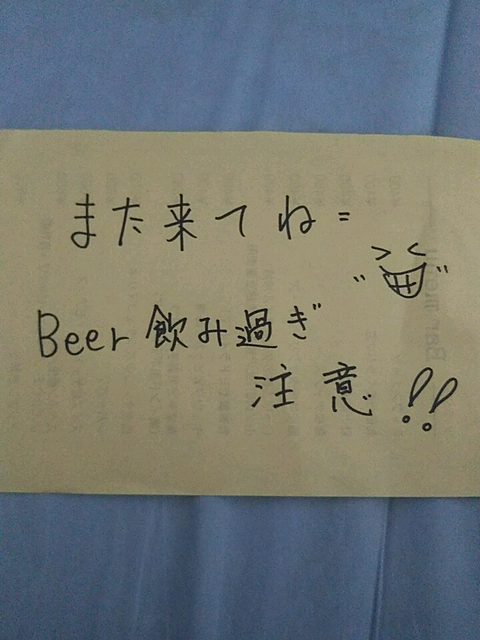 また来てね=
Beer 飲み過ぎ
注意!!